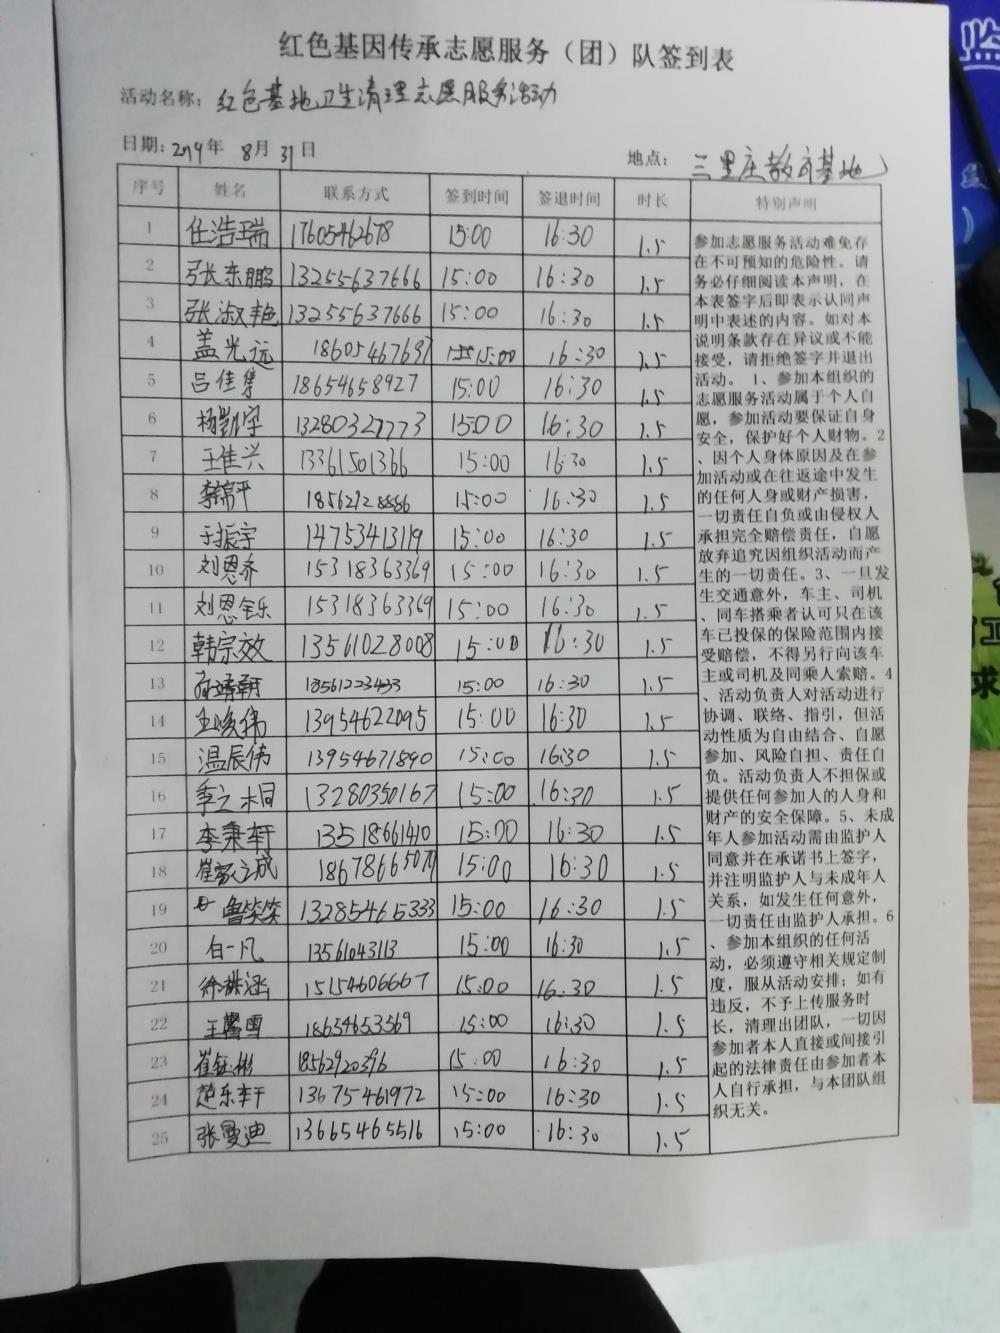 红色基因传承志愿服务（团）队签到表
活动名称：红色基地卫生清理志愿服务活动
日期：2019年 8月 31日
地点：三里庄教育基地
序号 姓名 联系方式 签到时间 签退时间 时长 特别声明
1 任浩瑞 17605462678 15:00 16:30 1.5
2 张东鹏 13255637666 15:00 16:30 1.5
3 张淑艳 13255637666 15:00 16:30 1.5
4 盖光远 18605467697 15:00 16:30 1.5
5 吕佳隼 18654658927 15:00 16:30 1.5
6 杨凯宇 13280327773 15:00 16:30 1.5
7 王佳兴 13361501366 15:00 16:30 1.5
8 18562928886 15:00 16:30 1.5
9 于振宇 14753413119 15:00 16:30 1.5
10 刘恩乔 15318363369 15:00 16:30 1.5
11 刘恩铄 15318363369 15:00 16:30 1.5
12 韩宗效 13561028008 15:00 16:30 1.5
13 15:00 16:30 1.5
14 王峻伟 13954622095 15:00 16:30 1.5
15 温辰伟 13954671890 15:00 16:30 1.5
16 季之桐 13280350167 15:00 16:30 1.5
17 李秉轩 13518661410 15:00 16:30 1.5
18 崔家之成 18678665070 15:00 16:30 1.5
19 鲁笑笑 13285465333 15:00 16:30 1.5
20 白一凡 13561043113 15:00 16:30 1.5
21 涵 15154606667 15:00 16:30 1.5
22 王馨雪 18654653569 15:00 16:30 1.5
23 崔钰彬 18562920396 15:00 16:30 1.5
24 赵乐轩 13675461972 15:00 16:30 1.5
25 张曼迪 13665465516 15:00 16:30 1.5
参加志愿服务活动难免存
在不可预知的危险性。请
务必仔细阅读本声明，在
本表签字后即表示认同声
明中表述的内容。如对本
说明条款存在异议或不能
接受，请拒绝签字并退出
活动。 1、参加本组织的
志愿服务活动属于个人自
愿，参加活动要保证自身
安全，保护好个人财物。2
、因个人身体原因及在参
加活动或在往返途中发生
的任何人身或财产损害，
一切责任自负或由侵权人
承担完全赔偿责任，自愿
放弃追究因组织活动而产
生的一切责任。3、一旦发
生交通意外，车主、司机
、同车搭乘者认可只在该
车已投保的保险范围内接
受赔偿，不得另行向该车
主或司机及同乘人索赔。4
、活动负责人对活动进行
协调、联络、指引，但活
动性质为自由结合、自愿
参加、风险自担、责任自
负。活动负责人不担保或
提供任何参加人的人身和
财产的安全保障。5、未成
年人参加活动需由监护人
同意并在承诺书上签字，
并注明监护人与未成年人
关系，如发生任何意外，
一切责任由监护人承担。6
、参加本组织的任何活
动，必须遵守相关规定制
度，服从活动安排；如有
违反，不予上传服务时
长，清理出团队，一切因
参加者本人直接或间接引
起的法律责任由参加者本
人自行承担，与本团队组
织无关。
监
工
求